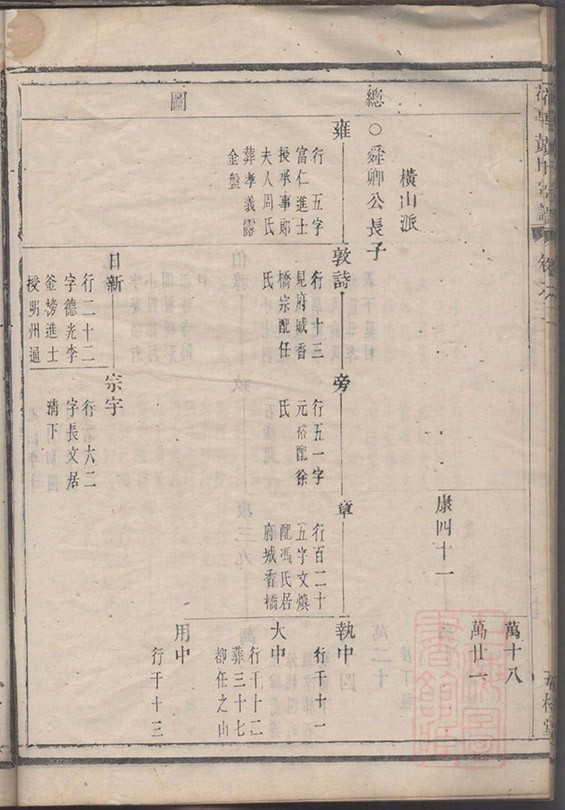 總
圖
萬十八
康四十一
萬廿一
橫山派
○舜卿公長子
雍
行五字
富仁進士
授承事郎
夫人周氏
葬孝義
金盤
敦詩
行一十三
見府城香
橋宗配任
氏
旁
行五一字
元裕配徐
氏
章
行百二十
五字文煥
配馮氏居
府城香橋
執中
行千十一
大中
行千十二
葬三十七
都任之山
用中
行千十三
日新
行二十二
字德光李
釜榜進士
授明州通
宗宇
行六二
字長文居
清下